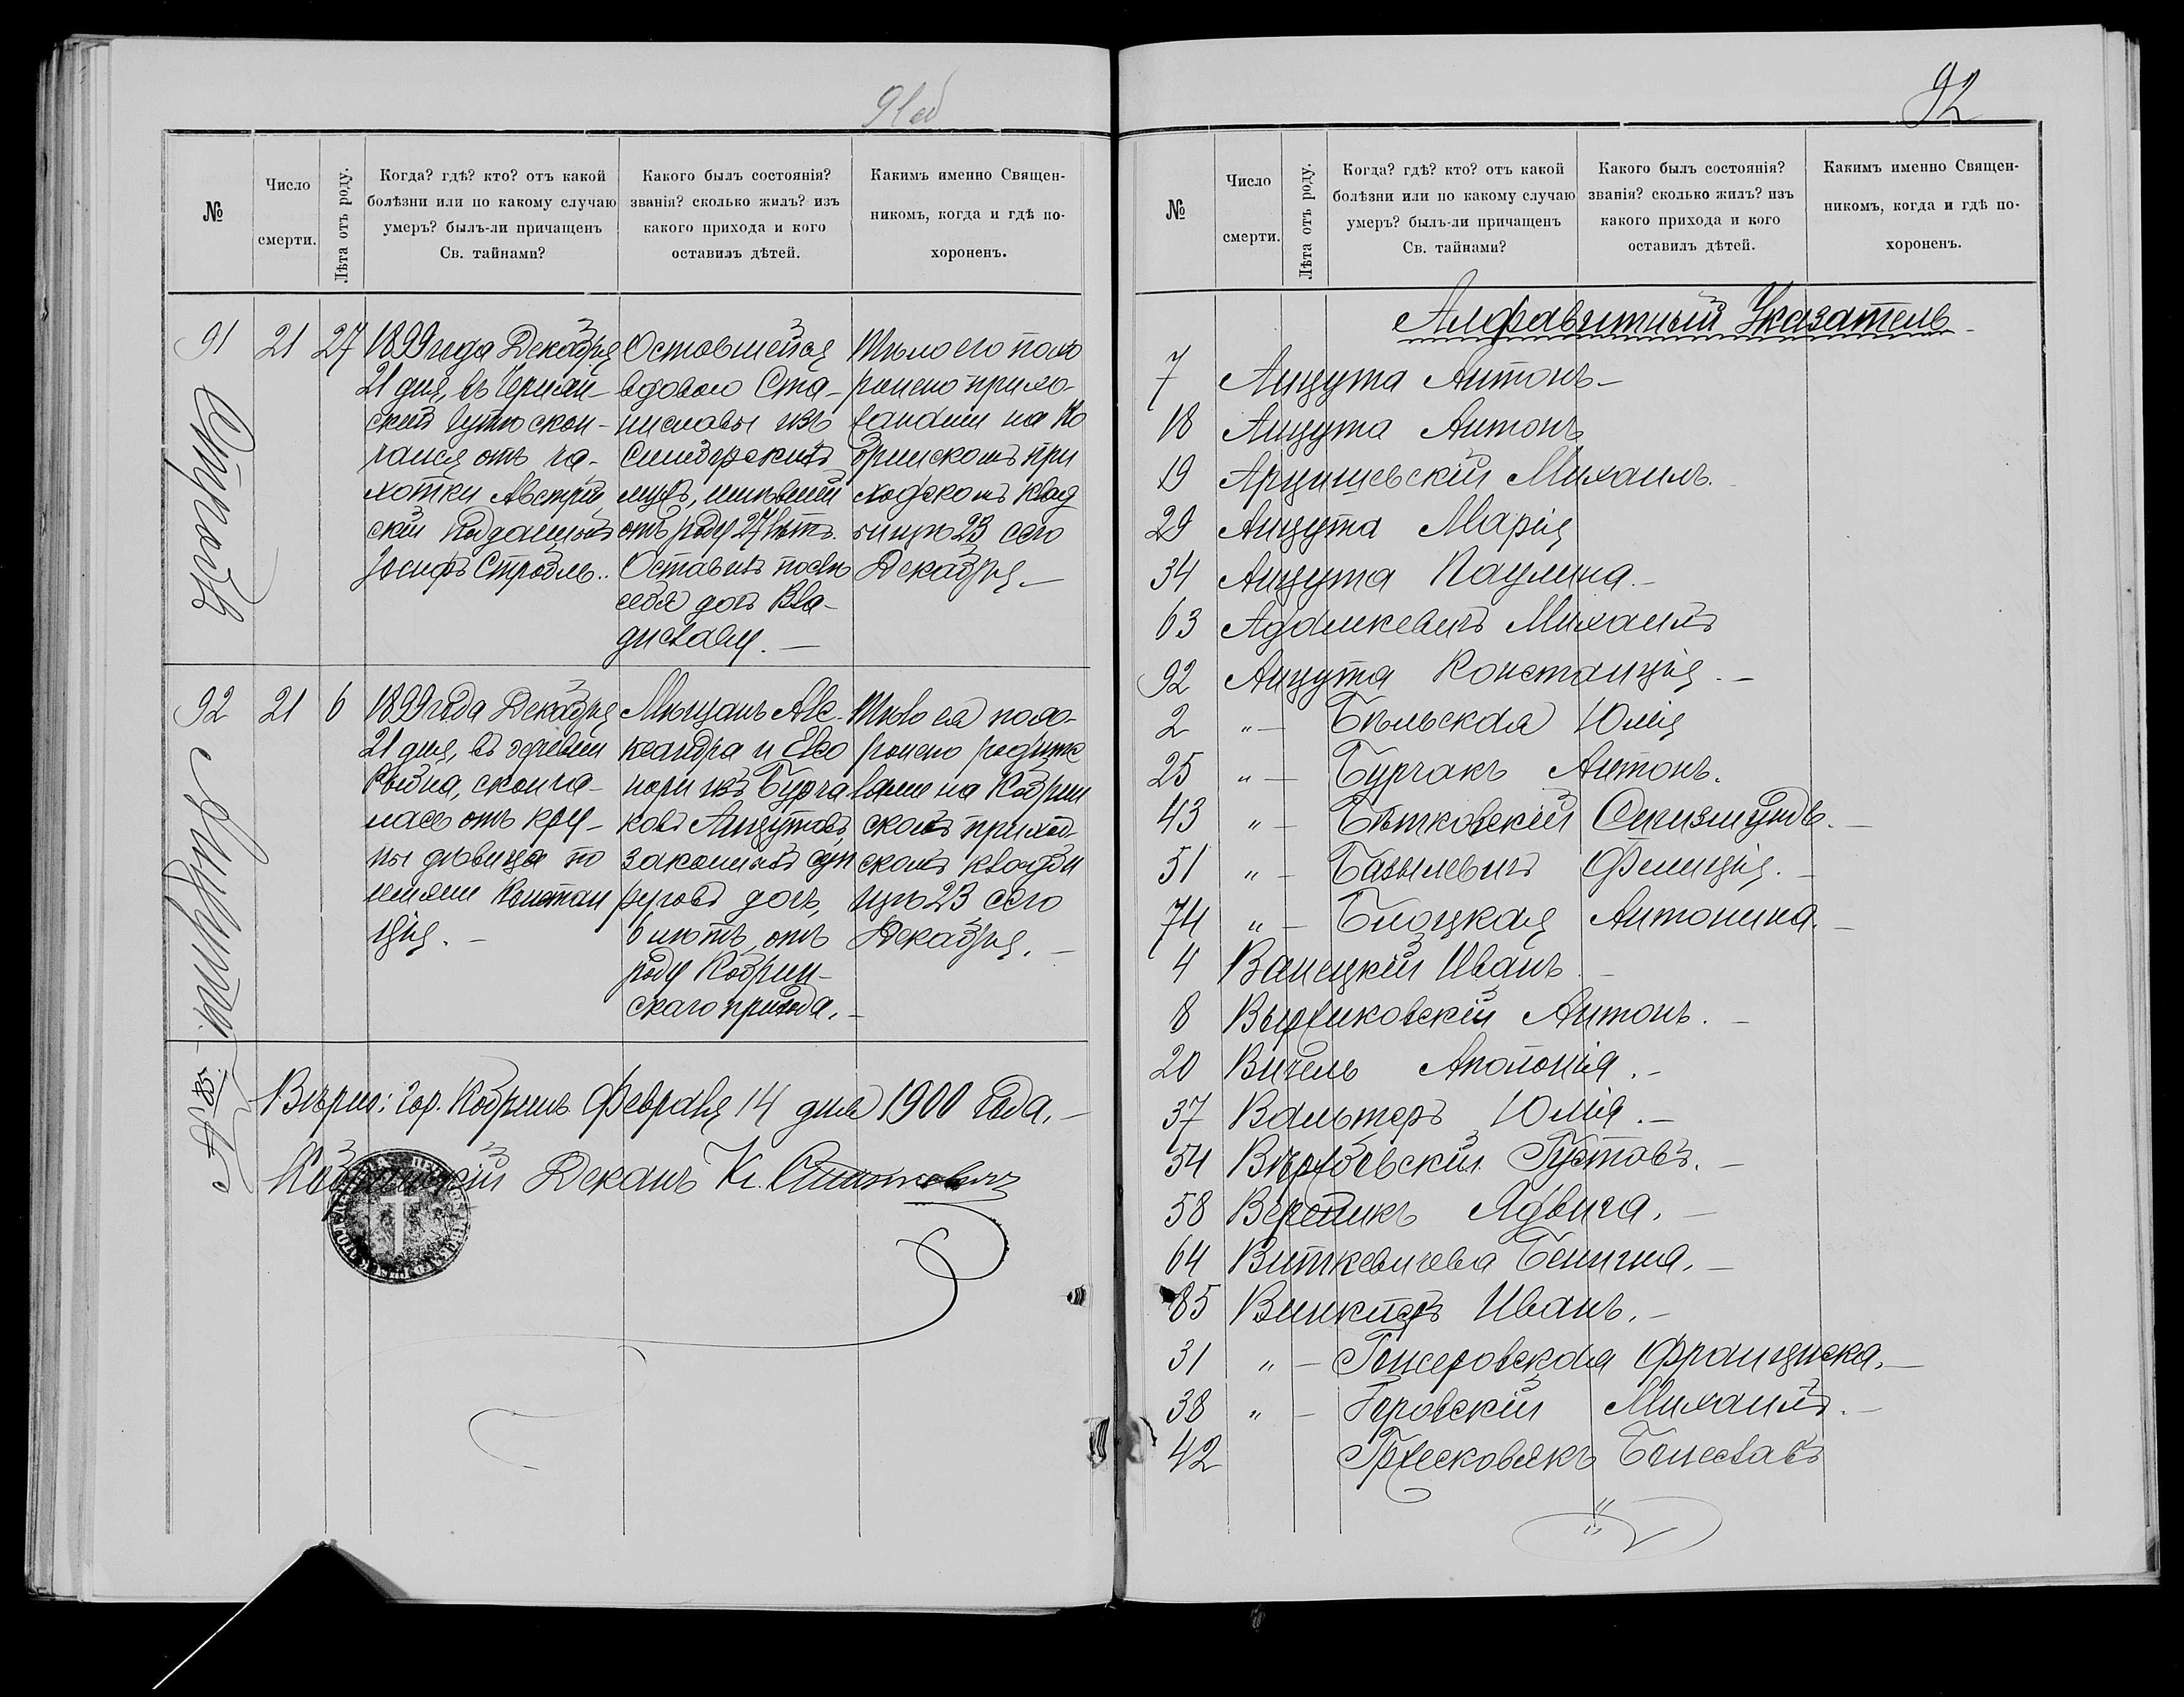 91 об
№
Число
смерти.
Лѣта отъ роду.
Когда? гдѣ? кто? отъ какой
болѣзни или по какому случаю
умеръ? былъ-ли причащенъ
Св. тайнами?
Какого былъ состоянія?
званія? сколько жилъ? изъ
какого прихода и кого
оставилъ дѣтей.
Какимъ именно Священ-
никомъ, когда и гдѣ по-
хороненъ.
91
Стробль
21
27
1899 года Декабря
21 дня, въ
скон-
чался отъ ча-
хотки Австрій
скій подданный
Іосифъ Стробль..
Оставшейся
вдовою Ста-
ниславы изъ
мужъ, имѣвшій
отъ роду 27 лѣтъ.
Оставилъ послѣ
себя дочь Вла-
диславу. —
Тѣло его похо
ронено прихо-
жанами на Ко
бринскомъ при
ходскомъ клад
бищѣ 23 сего
Декабря. —
92
Анцутъ
21
6
1899 года Декабря
21 дня, въ деревни
сконча-
лась отъ кру-
пы дѣвица по
имени Констан
ція. —
Мѣщанъ Але-
ксандра и Элео
норы изъ Бурча
ковъ Анцутовъ,
законныхъ суп
руговъ дочь,
6 лѣтъ отъ
роду Кобрин-
скаго прихода. —
Тѣло ея похо-
ронено родите
лями на Кобрин
скомъ приход-
скомъ кладби
щѣ 23 сего
Декабря. —
Вѣрно: гор. Кобринъ Февраля 14 дня 1900 года. —
Кобринскій Деканъ Кс.
92
№
Число
смерти.
Лѣта отъ роду.
Когда? гдѣ? кто? отъ какой
болѣзни или по какому случаю
умеръ? былъ-ли причащенъ
Св. тайнами?
Какого былъ состоянія?
званія? сколько жилъ? изъ
какого прихода и кого
оставилъ дѣтей.
Какимъ именно Священ-
никомъ, когда и гдѣ по-
хороненъ.
Алфавитный Указатель
7 Анцута Антонъ —
18 Анцута Антонъ
19 Арцишевскій Михаилъ.
29 Анцута Марія
34 Анцута Паулина. —
63 Адамкевичъ Михаилъ
92 Анцута Констанція. —
2 „ — Бѣльская Юлія
25 „ — Бурчакъ Антонъ.
43 „ — Бѣтковскій Сигизмундъ. —
51 „ — Базылевичъ Фелиція. —
74 „ — Блоцкая Антонина. —
4 Иванъ. —
8 Выржиковскій Антонъ. —
20 Вичель Аполонія. —
37 Вальтеръ Юлія. —
54 Вѣржбовскій Густавъ. —
58 Ядвига. —
64 Виткевичева Бенигна. —
85 Винклеръ Иванъ. —
31 „ — Гонсеровская Франциска. —
38 „ — Геровскій Михаилъ. —
42 Гржесковякъ Болеславъ